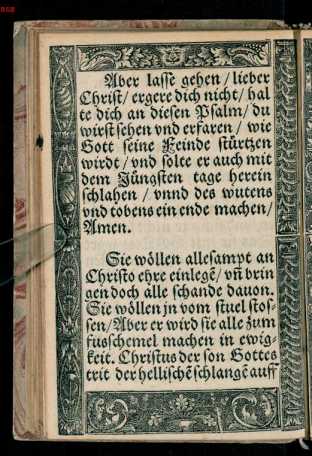 Aber lasse gehen / lieber
Christ / ergere dich nicht / hal
te dich an diesen Psalm / du
wirst sehen vnd erfaren / wie
Gott seine Feinde stürtzen
wirdt / vnd solte er auch mit
dem Jüngsten tage herein
schlahen / vnnd des wutens
vnd tobens ein ende machen /
Amen.
Sie wöllen allesampt an
Christo ehre einlegē / vn̄ brin
gen doch alle schande dauon.
Sie wöllen jn vom stuel stos-
sen / Aber er wird sie alle zum
fusschemel machen in ewig-
keit. Christus der son Gottes
trit der hellischē schlangē auff